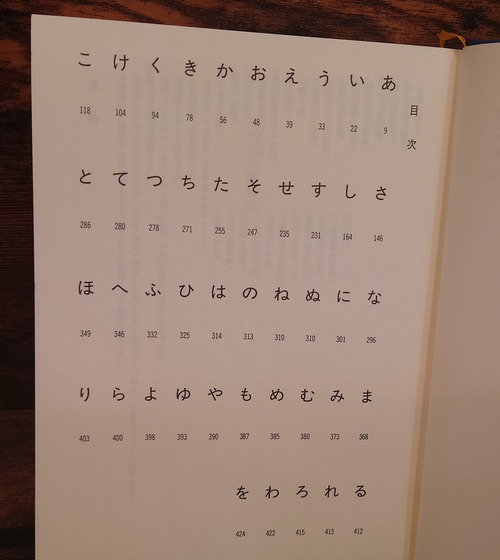 目次
あ い う え お か き く け こ
9 22 33 39 48 56 78 94 104 118
さ し す せ そ た ち つ て と
146 164 231 235 247 255 271 278 280 286
な に ぬ ね の は ひ ふ へ ほ
296 301 310 310 313 314 325 332 346 349
ま み む め も や ゆ よ ら り
368 373 380 385 387 390 393 398 400 403
る れ ろ わ を
412 413 415 422 424